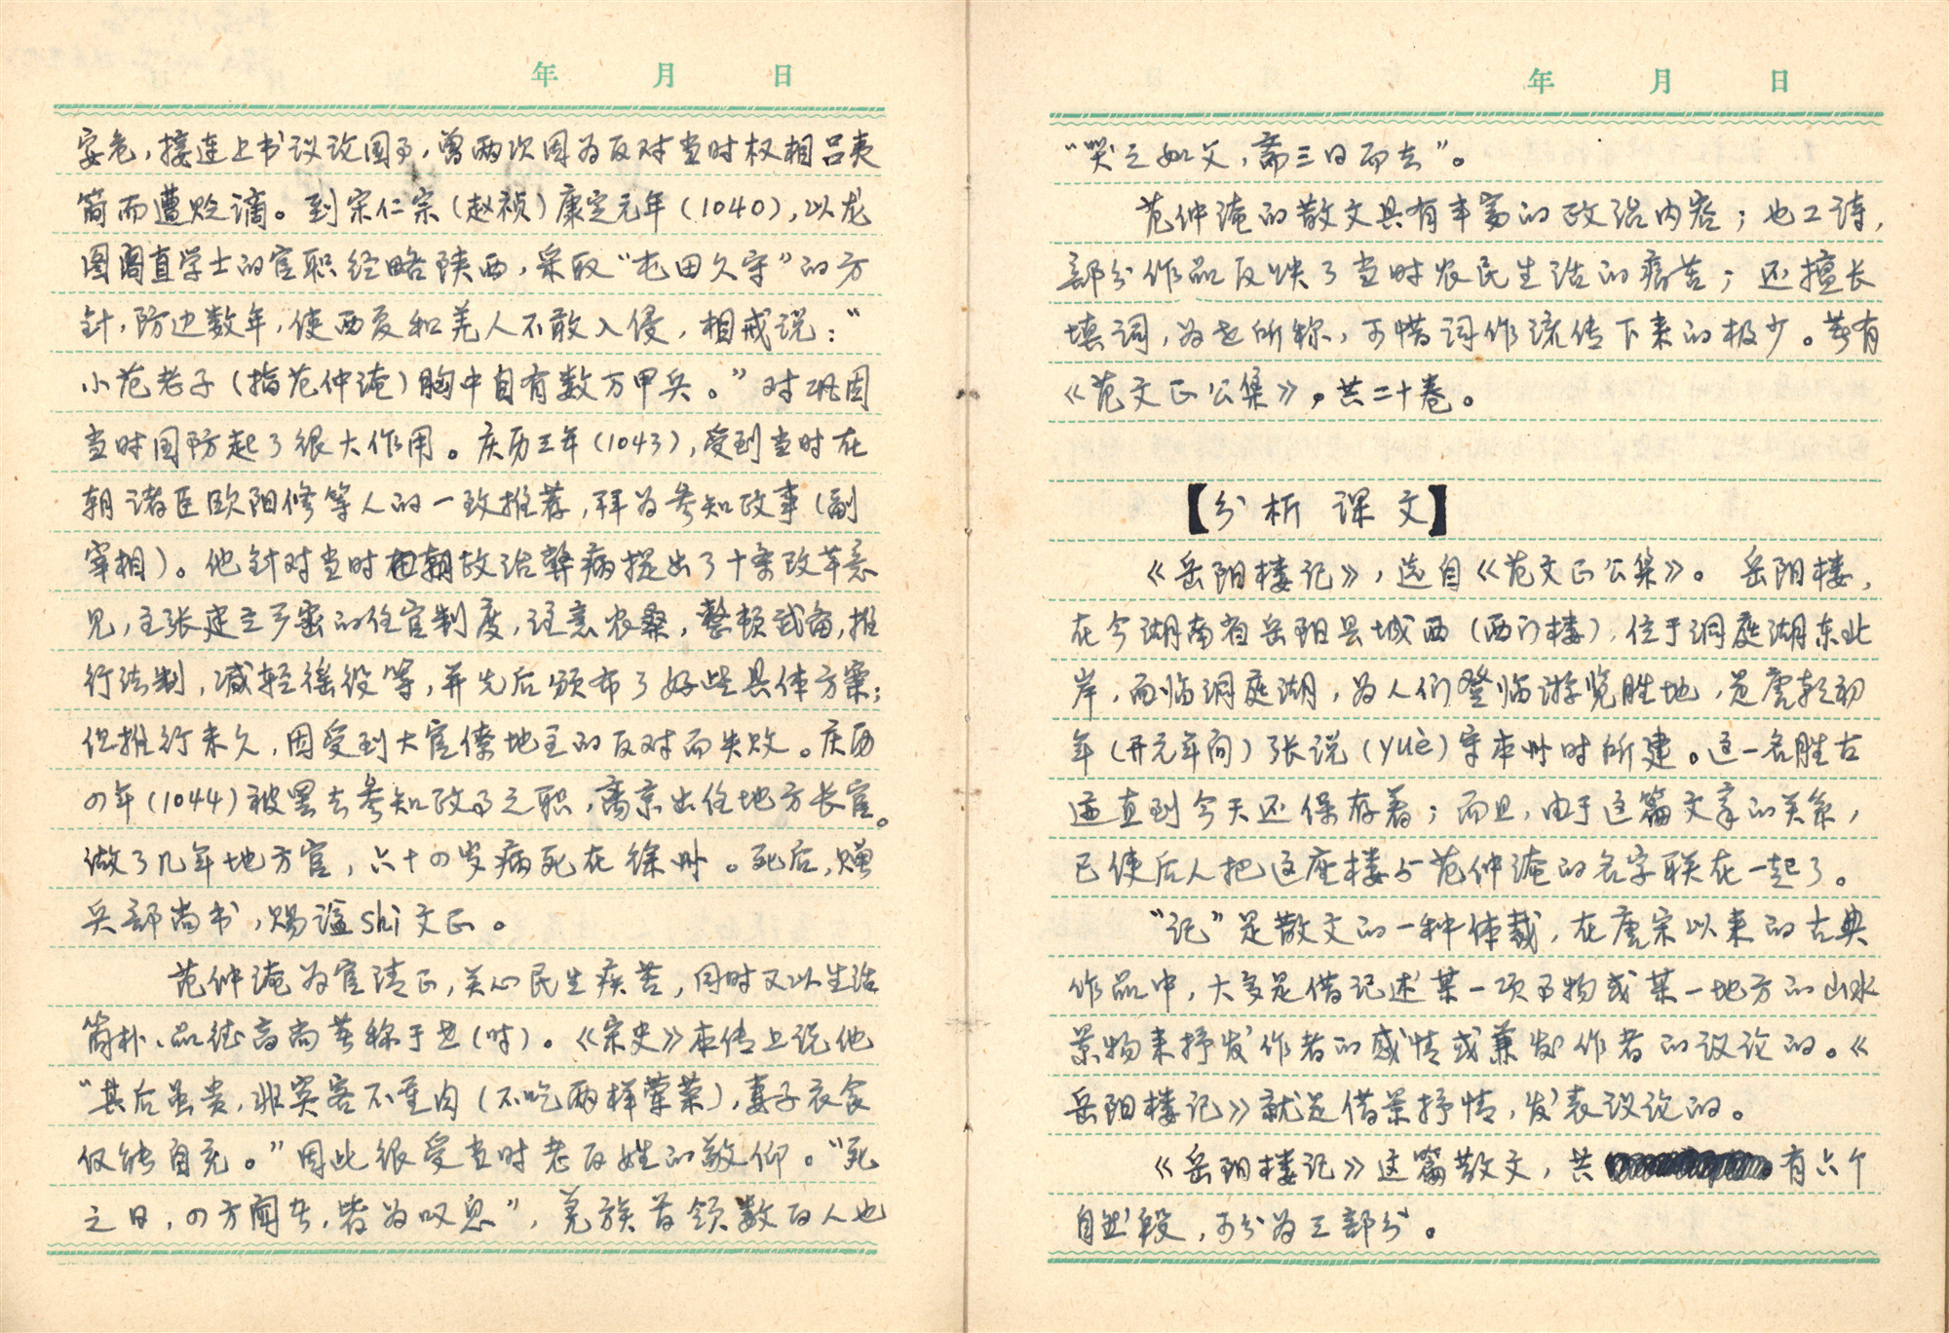 年 月 日
安危，接连上书议论国事，曾两次因为反对当时权相吕夷
简而遭贬谪。到宋仁宗（赵祯）康定元年（1040），以龙
图阁直学士的官职经略陕西，采取“屯田久守”的方
针，防边数年，使西夏和羌人不敢入侵，相戒说：“
小范老子（指范仲淹）胸中自有数万甲兵。”对巩固
当时国防起了很大作用。庆历三年（1043），受到当时在
朝诸臣欧阳修等人的一致推荐，拜为参知政事（副
宰相）。他针对当时朝政治弊病提出了十条改革意
见，主张建立严密的任官制度，注意农桑，整顿武备，推
行法制，减轻徭役等，并先后颁布了好些具体方案；
但推行未久，因受到大官僚地主的反对而失败。庆历
四年（1044）被罢去参知政事之职，离京出任地方长官。
做了几年地方官，六十四岁病死在徐州。死后，赠
兵部尚书，赐谥shi文正。
范仲淹为官清正，关心民生疾苦，同时又以生活
简朴、品德高尚著称于世（时）。《宋史》本传上说他
“其后虽贵，非宾客不重肉（不吃两样荤菜），妻子衣食
仅能自充。”因此很受当时老百姓的敬仰。“死
之日，四方闻者，皆为叹息”，羌族首领数百人也
年 月 日
“哭之如父，斋三日而去”。
范仲淹的散文具有丰富的政治内容；也工诗，
部分作品反映了当时农民生活的痛苦；还擅长
填词，为世所称，可惜词作流传下来的极少。著有
《范文正公集》，共二十卷。
【分析课文】
《岳阳楼记》，选自《范文正公集》。岳阳楼，
在今湖南省岳阳县城西（西门楼），位于洞庭湖东北
岸，面临洞庭湖，为人们登临游览胜地，是唐朝初
年（开元年间）张说（yuè）守本州时所建。这一名胜古
迹直到今天还保存着；而且，由于这篇文章的关系，
已使后人把这座楼与范仲淹的名字联在一起了。
“记”是散文的一种体裁，在唐宋以来的古典
作品中，大多是借记述某一项事物或某一地方的山水
景物来抒发作者的感情或兼发作者的议论的。《
岳阳楼记》就是借景抒情，发表议论的。
《岳阳楼记》这篇散文，共有六个
自然段，可分为三部分。